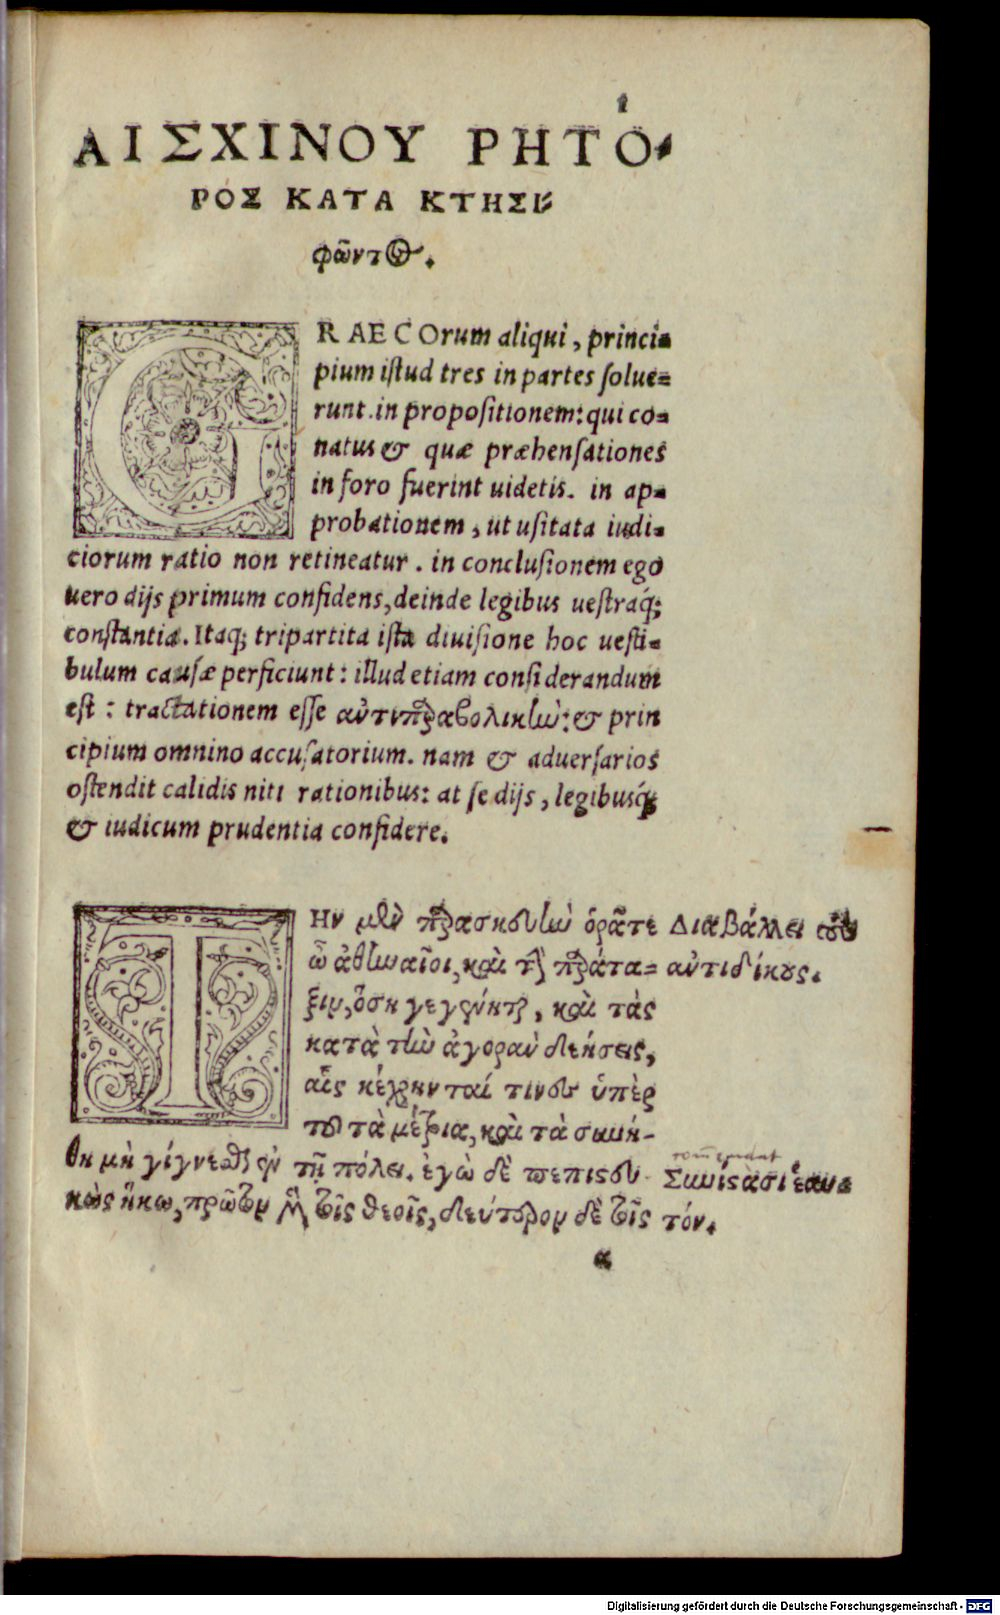 ΑΙΣΧΙΝΟΥ ΡΗΤΟ΄-
ΡΟΣ ΚΑΤΑ ΚΤΗΣΙ-
φῶντος.
GRAECOrum aliqui, princi=
pium istud tres in partes solue=
runt. in propositionem: qui co=
natus & quæ præhensationes
in foro fuerint uidetis. in ap=
probationem, ut usitata iudi=
ciorum ratio non retineatur. in conclusionem ego
uero dijs primum confidens, deinde legibus uestraq́;
constantia. Itaq; tripartita ista diuisione hoc uesti=
bulum causæ perficiunt: illud etiam considerandum
est: tractationem esse ἀντιπαραβολικὴν: & prin
cipium omnino accusatorium. nam & aduersarios
ostendit calidis niti rationibus: at se dijs, legibusq́;
& iudicum prudentia confidere.
ΤΗν μὲν παρασκευὴν ὁρᾶτε
ὦ ἀθηναῖοι, καὶ τὴν παράτα=
ξιν, ὅση γεγένηται, καὶ τὰς
κατὰ τὴν ἀγορὰν δεήσεις,
αἷς κέχρηνταί τινες ὑπὲρ
τοῦ τὰ μέτρια, καὶ τὰ συνή-
θη μὴ γίγνεσθαι ἐν τῇ πόλει. ἐγὼ δὲ πεπιστευ
κὼς ἥκω, πρῶτον μὲν τοῖς θεοῖς, δεύτερον δὲ τοῖς
Διαβάλλει τοὺς
ἀντιδίκους.
Συνιστᾶσι ἑαυ=
τόν.
α
Digitalisierung gefördert durch die Deutsche Forschungsgemeinschaft - DFG